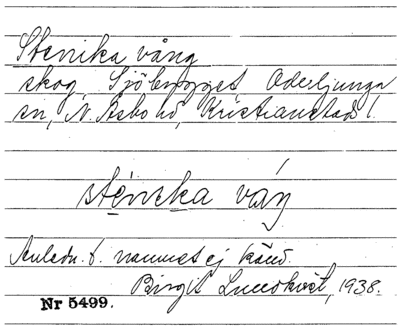 Stenika vång
skog, Sjöbygget, Oderljunga
sn, N. Åsbo hd, Kristianstads l.
sténịka váŋ
Anledn. t. namnet ej känd.
Birgit Lundkvist, 1938.
Nr 5499.